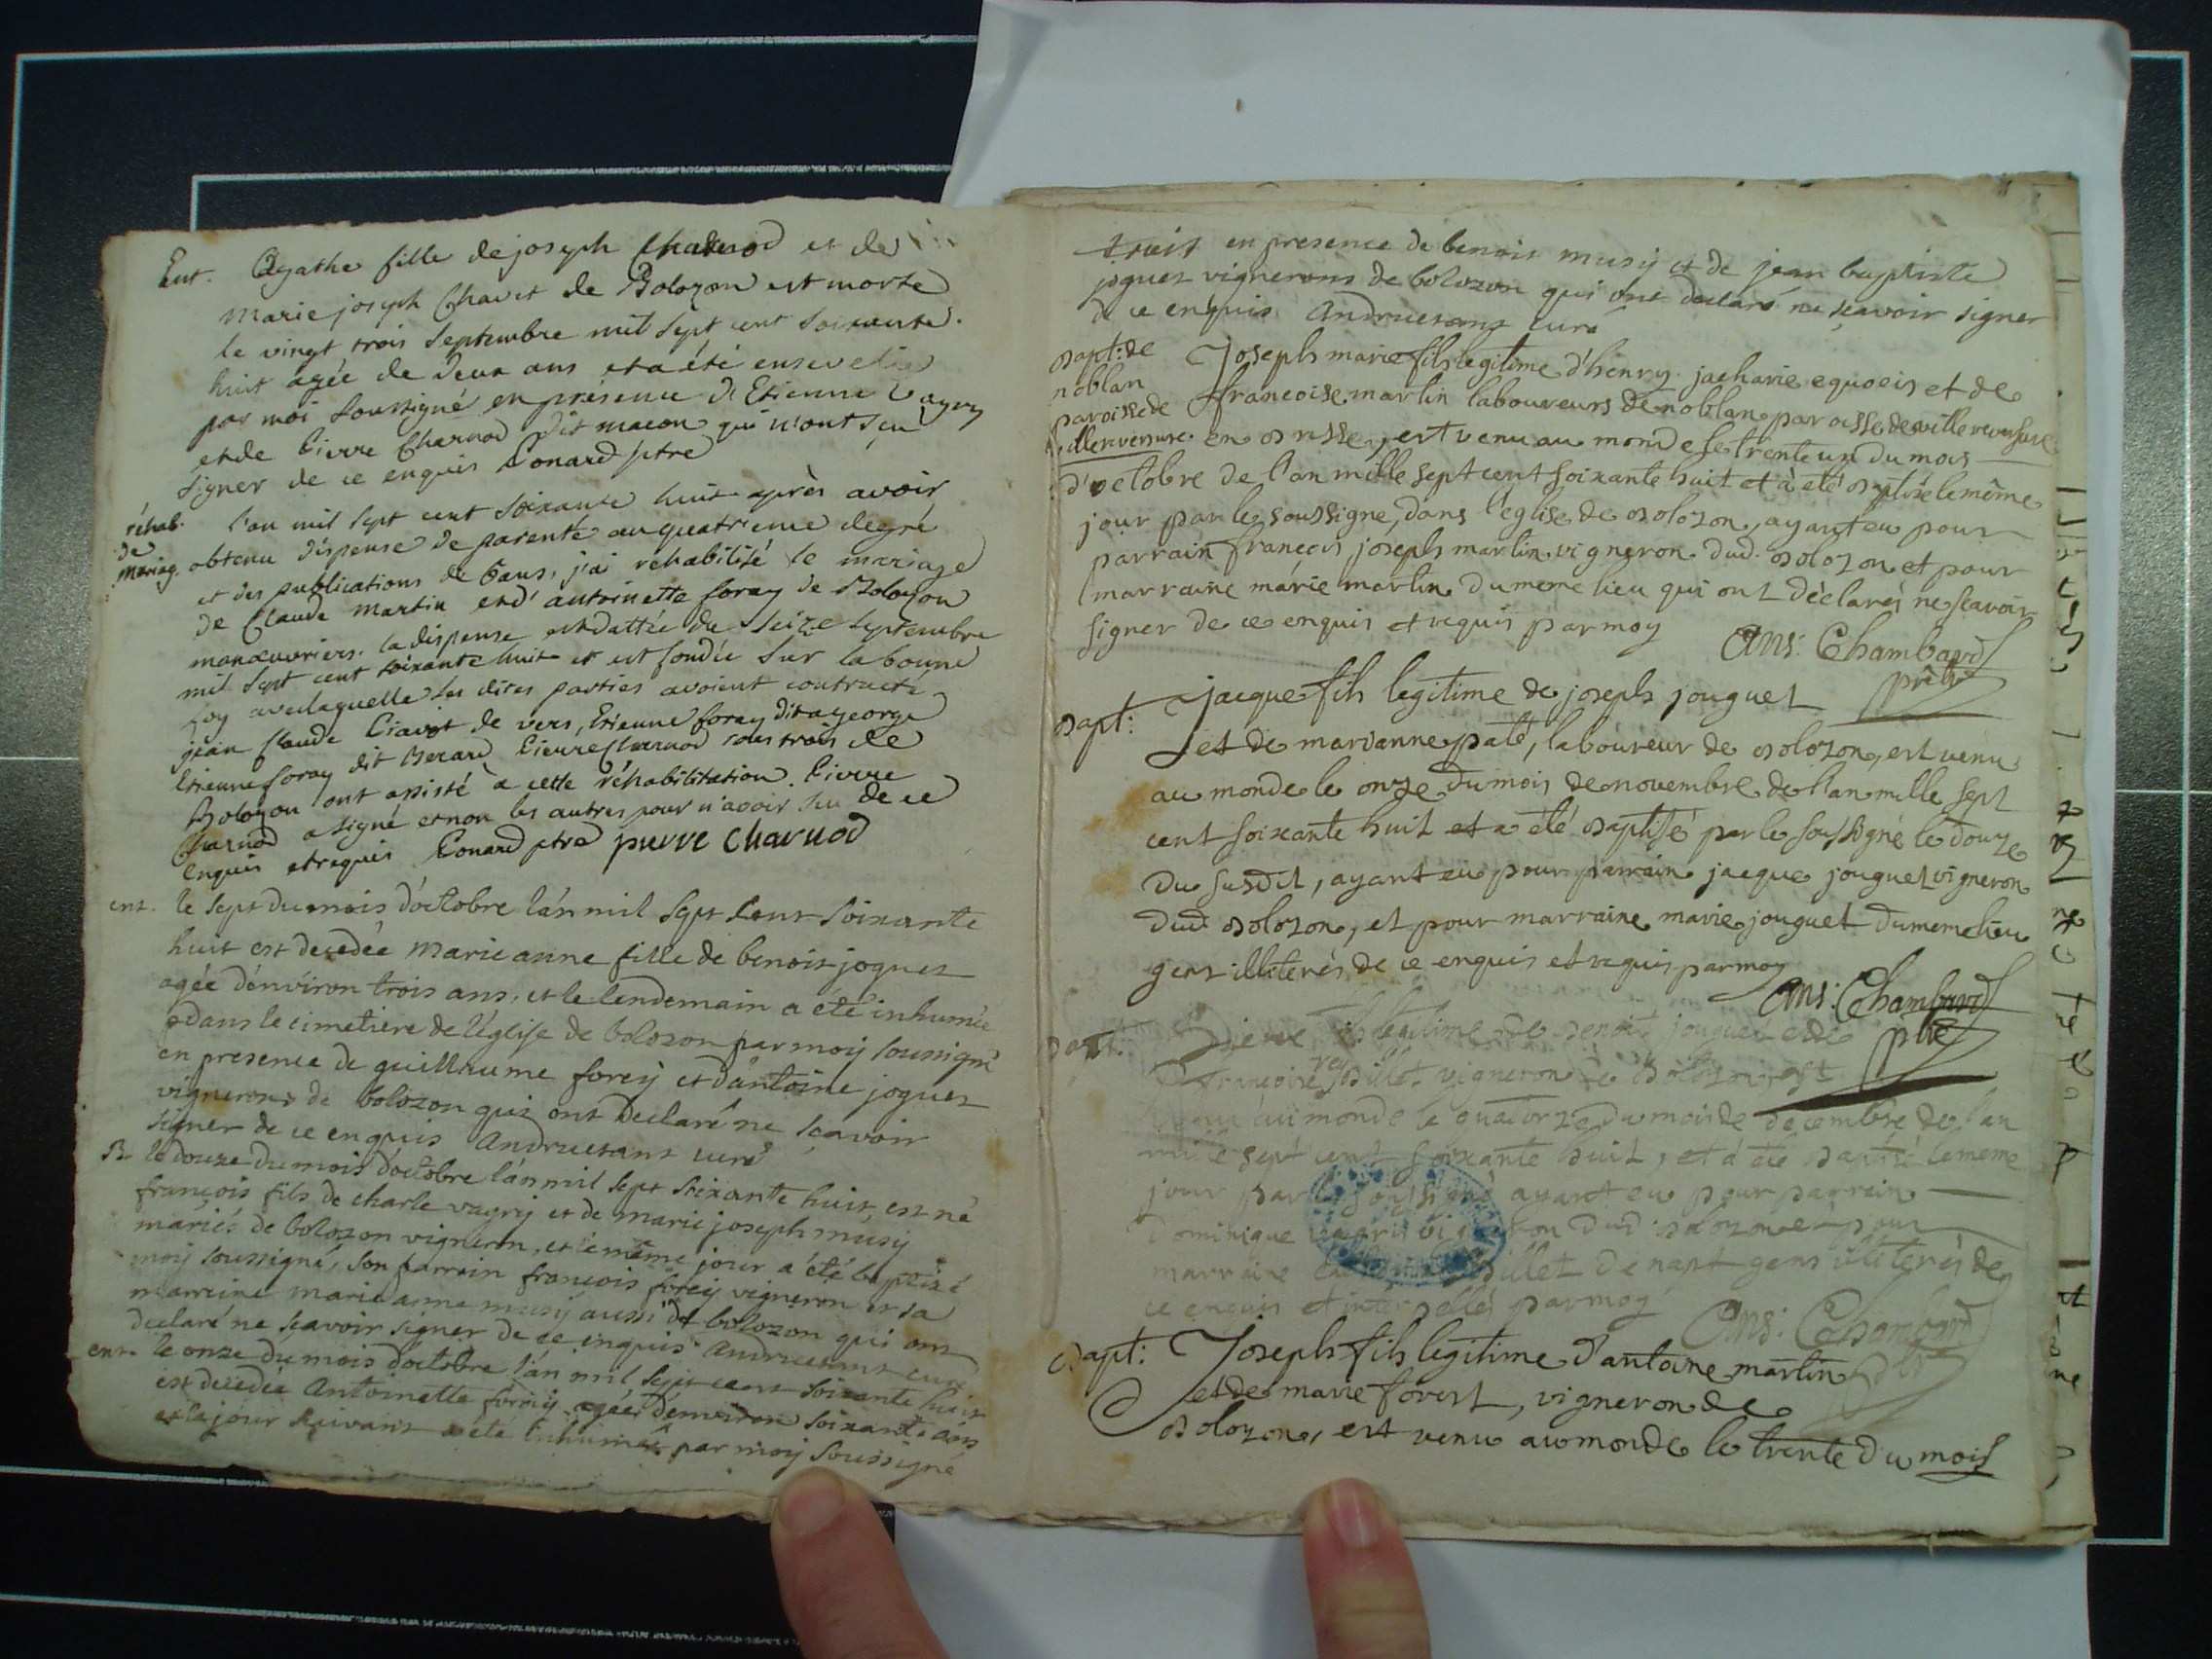 Ent. Agathe fille de joseph Charnod et de
marie joseph Chavet de Bolozon est morte
le vingt trois Septembre mil sept cent soixante
huit agée de deux ans et a été ensevelie
par moi soussigné en présence d'Etienne Vagry
et de Pierre Charnod dit macon qui n'ont sçu
signer de ce enquis Conard ptre
réhab. de mariag. l'an mil sept cent soixante huit après avoir
obtenu dispense de parenté au quatrieme degré
et des publications de bans, j'ai réhabilité le mariage
de Claude Martin et d'antoinette foray de Bolozon
manœuvriers. la dispense est dattée du seize septembre
mil sept cent soixante huit et est fondée sur la bonne
foy avec laquelle les dites parties avoient contracté
jean Claude de vers, Etienne foray dit a george
Etienne foray dit Berard Pierre Charnod tous trois de
Bolozon ont assisté à cette réhabilitation. Pierre
Charnod a signé et non les autres pour n'avoir su de ce
enquis et requis Conard ptre pierre Charnod
ent. le sept du mois d'octobre l'an mil sept cent soixante
huit est decedée marie anne fille de benoit joguet
agée d'environ trois ans, et le lendemain a été inhumée
dans le cimetiere de l'église de bolozon par moy soussigné
en presence de guillaume forey et d'antoine joguet
vignerons de bolozon qui ont declaré ne sçavoir
signer de ce enquis Andruetant curé
B. le douze du mois d'octobre l'an mil sept soixante huit est né
francois fils de charle vagry et de marie joseph musy
mariés de bolozon vigneron, et le même jour a été baptisé
moy soussigné, son parrain francois forey vigneron et sa
marreine marie anne musy aussi de bolozon qui ont
declaré ne sçavoir signer de ce enquis Andruetant curé
ent. le onze du mois d'octobre l'an mil sept cent soixante huit
est decedée Antoinette forey agée d'environ soixante ans
et le jour suivant a été inhumée par moy soussigné
en presence de benoit musy et de jean baptiste
joguet vignerons de bolozon qui ont declaré ne sçavoir signer
de ce enquis Andruetant curé
bapt: de noblan paroisse de villereversure Joseph marie fils legitime d'henry jacharie et de
francoise marlin laboureurs de noblan paroisse de villereversure
en bresse, est venu au monde le trente un du mois
d'octobre de l'an mille sept cent soixante huit et à été baptisé le même
jour par le soussigne, dans l'église de bolozon, ayant eu pour
parrain francois joseph marlin vigneron dud. bolozon et pour
marraine marie marlin du meme lieu qui ont déclarés ne scavoir
signer de ce enquis et requis par moy
Ans: Chambard
prêtre
bapt: jacque fils legitime de joseph jouguet
et de marianne paté, laboureur de bolozon, est venu
au monde le onze du mois de novembre de l'an mille sept
cent soixante huit et a été baptisé par le soussigné le douze
du susdit, ayant eü pour parrain jacque jouguet vigneron
dud bolozon, et pour marraine marie jouguet du meme lieu
gens illiterés de ce enquis et requis par moy
Ans: Chambard
ptre
bapt: fils legitime de benoit jouguet et de
francoise billet vigneron de bolozon est
venu au monde le quatorze du mois de decembre de l'an
mille sept cent soixante huit, et a été baptisé le meme
jour par le soussigné ayant eu pour parrain
dominique vagry vigneron dud. bolozon et pour
marraine billet de napt gens illiterés de
ce enquis et interpellés par moy
Ans: Chambard
ptre
bapt: Joseph fils legitime d'antoine martin
et de marie forest, vigneron de
bolozon, est venu au monde le trente du mois